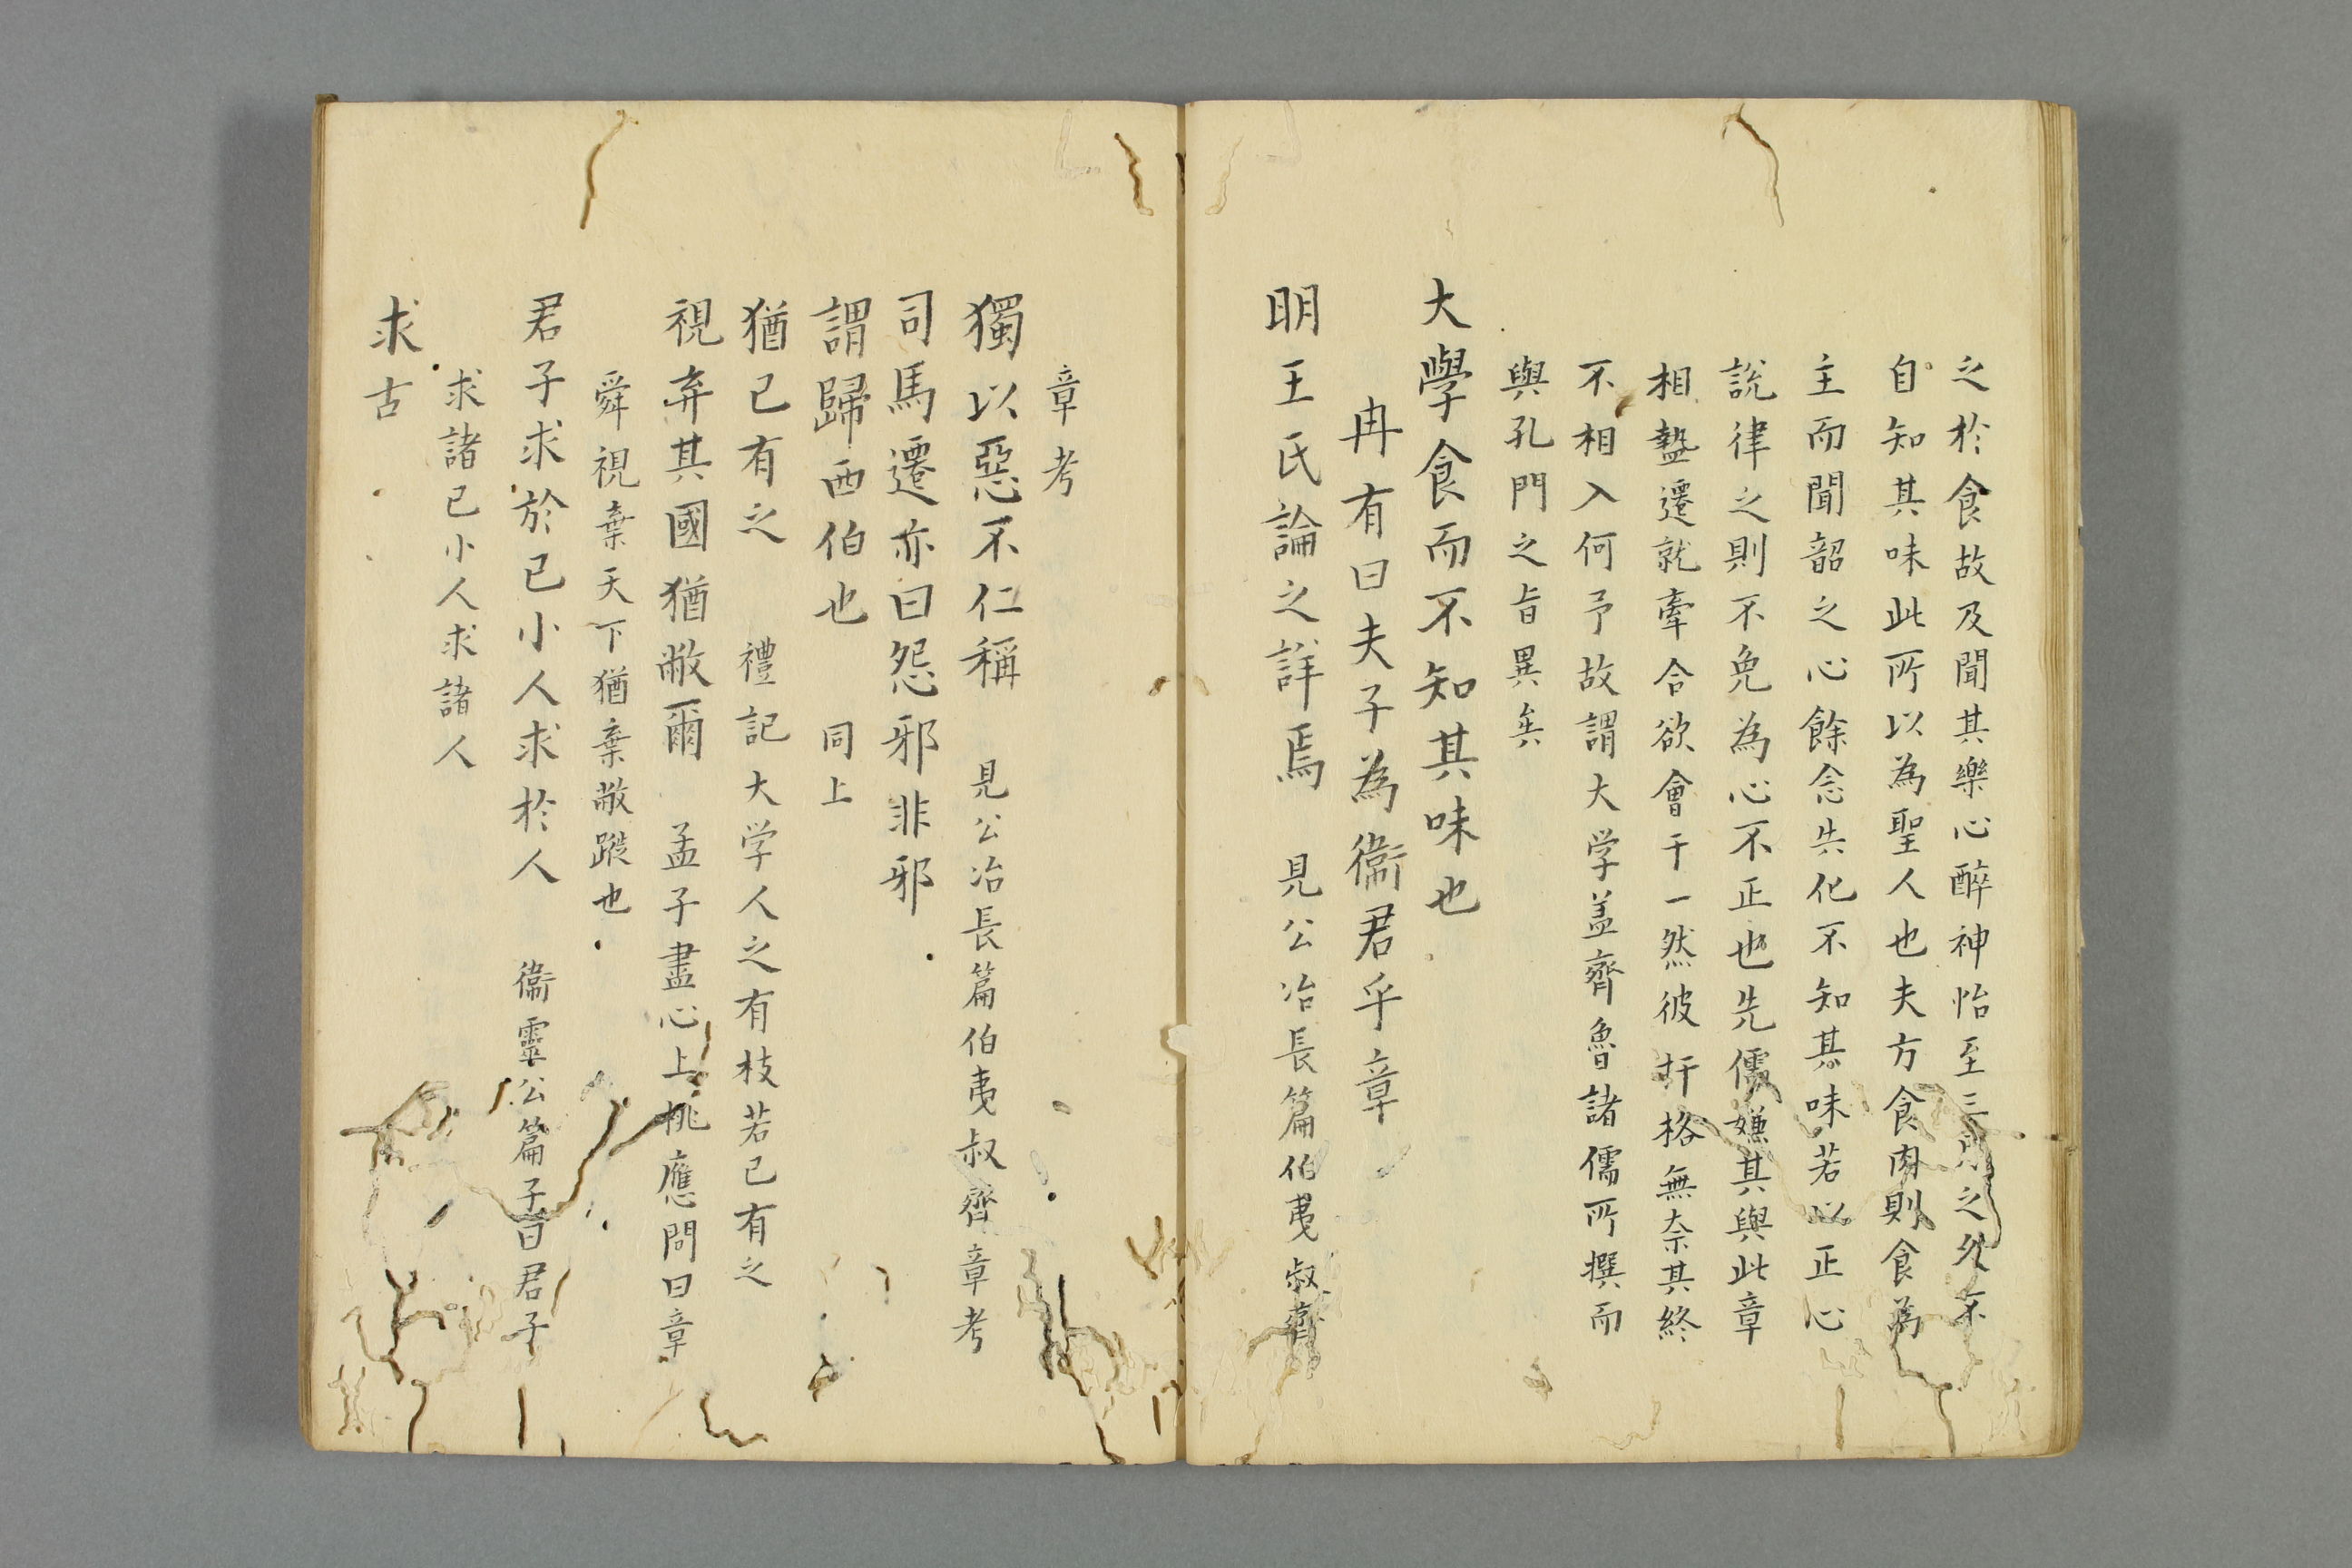 之於食故及聞其樂心醉神怡至三月之久不
自知其味此所以為聖人也夫方食肉則食為
主而聞韶之心餘念共化不知其味若以正心
說律之則不免為心不正也先儒嫌其與此章
相盭遷就牽合欲會于一然彼扞格無奈其終
不相入何予故謂大学盖齊魯諸儒所撰而
與孔門之旨異矣
大學食而不知其味也
冉有曰夫子為衞君乎章
明王氏論之詳焉 見公冶長篇伯夷叔齊
章考
獨以惡不仁稱 見公冶長篇伯夷叔齊章考
司馬遷亦曰怨邪非邪
謂歸西伯也 同上
猶已有之 禮記大学人之有枝若已有之
視弃其國猶敝爾 孟子盡心上桃應問曰章
舜視棄天下猶棄敝蹝也
君子求於已小人求於人 衞靈公篇子曰君子
求諸已小人求諸人
求古